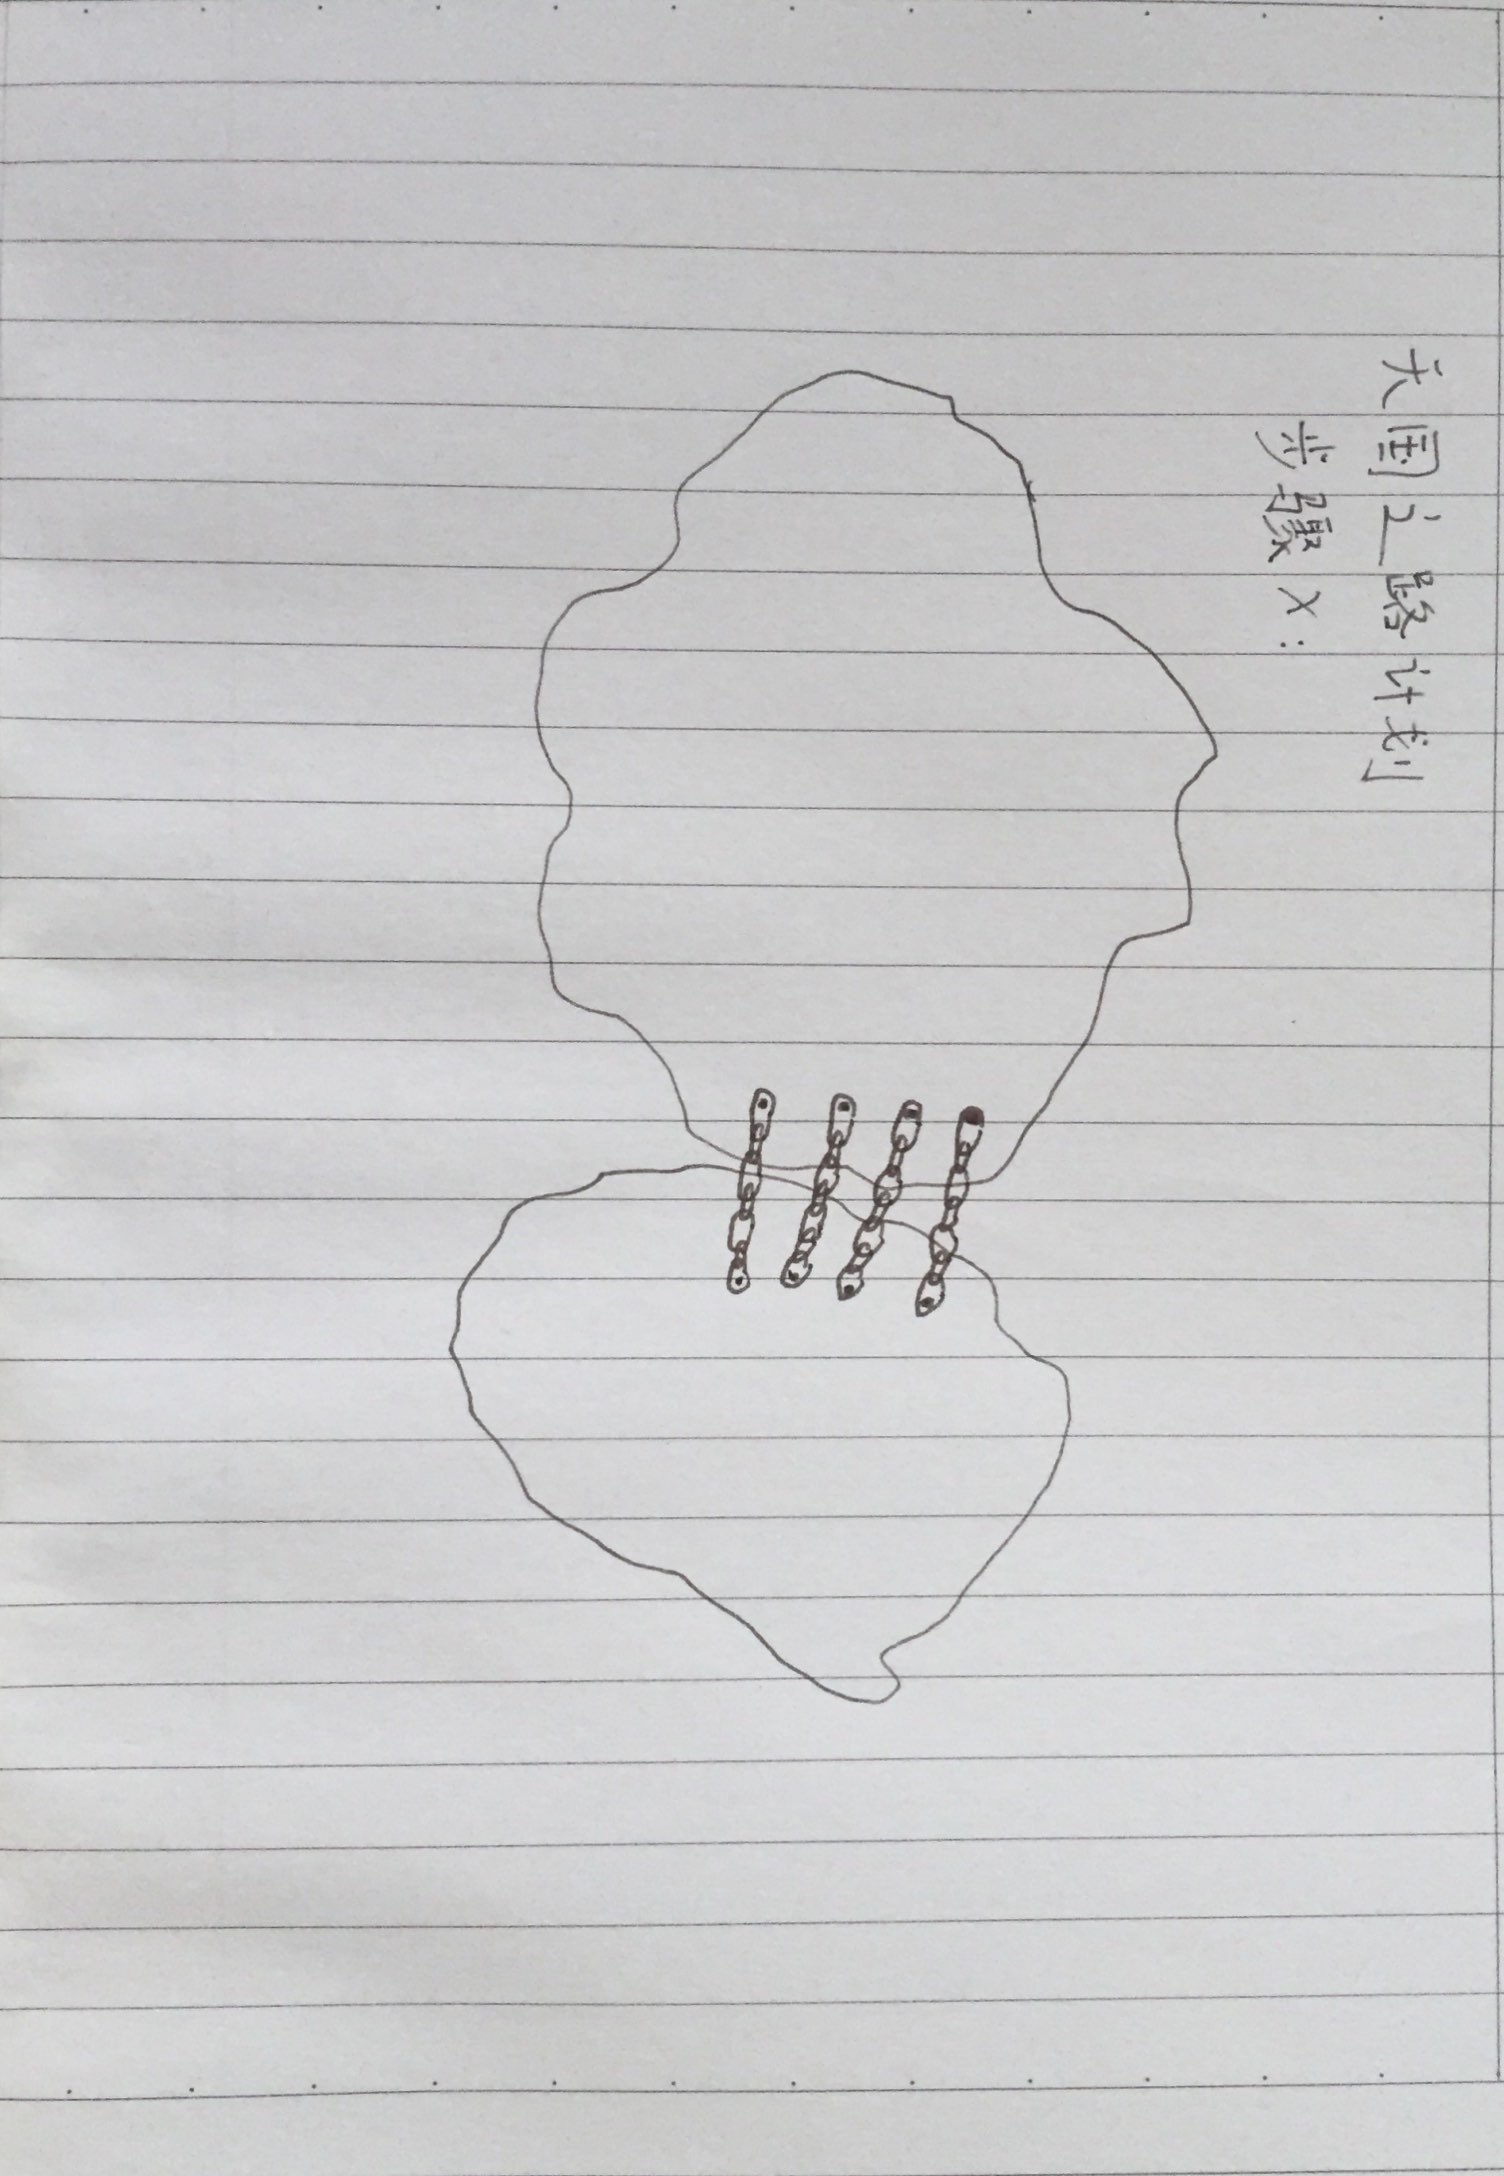 天国之路计划
步骤X: